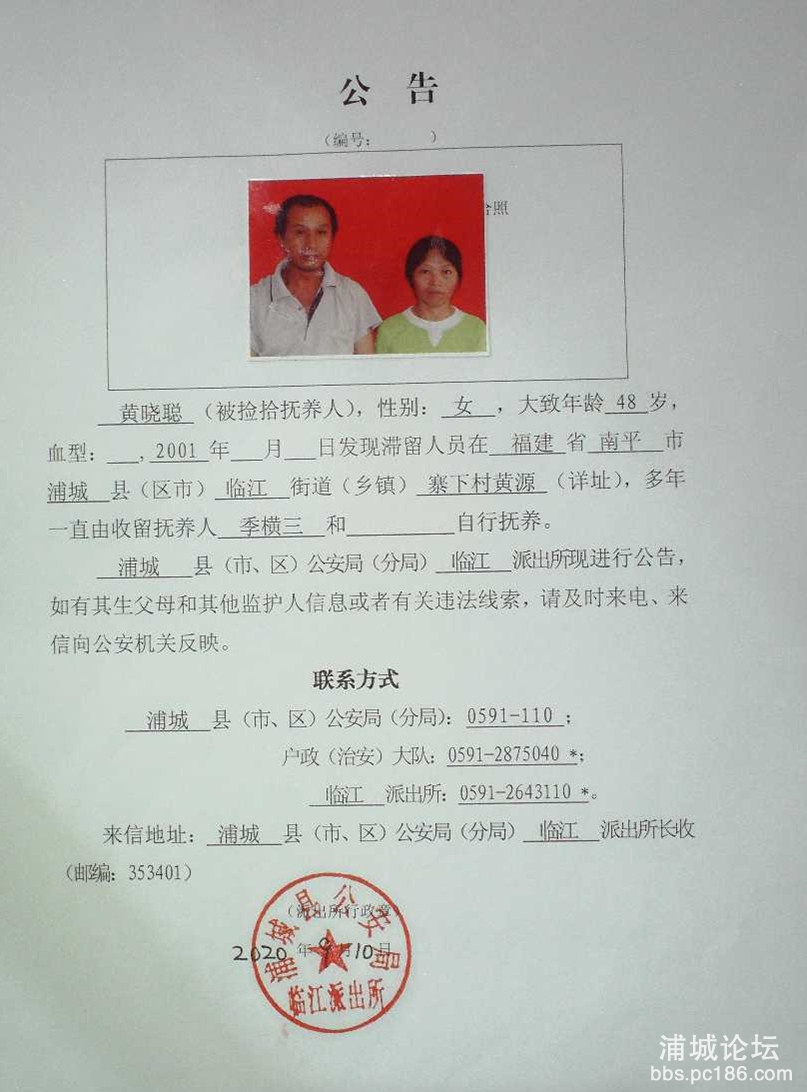 公 告
（编号：　　　）
合照
黄晓聪 （被捡拾抚养人），性别： 女 ，大致年龄 48 岁，
血型：　，2001 年　月　日发现滞留人员在 福建 省 南平 市
浦城 县（区市） 临江 街道（乡镇） 寨下村黄源 （详址），多年
一直由收留抚养人 季横三 和　　　　自行抚养。
浦城 县（市、区）公安局（分局） 临江 派出所现进行公告，
如有其生父母和其他监护人信息或者有关违法线索，请及时来电、来
信向公安机关反映。
联系方式
浦城 县（市、区）公安局（分局）：0591-110 ；
户政（治安）大队：0591-2875040 *；
临江 派出所：0591-2643110 *。
来信地址： 浦城 县（市、区）公安局（分局） 临江 派出所长收
（邮编：353401）
（派出所行政章）
2020 年 9 月 10 日
浦城县公安局
临江派出所
浦城论坛
bbs.pc186.com